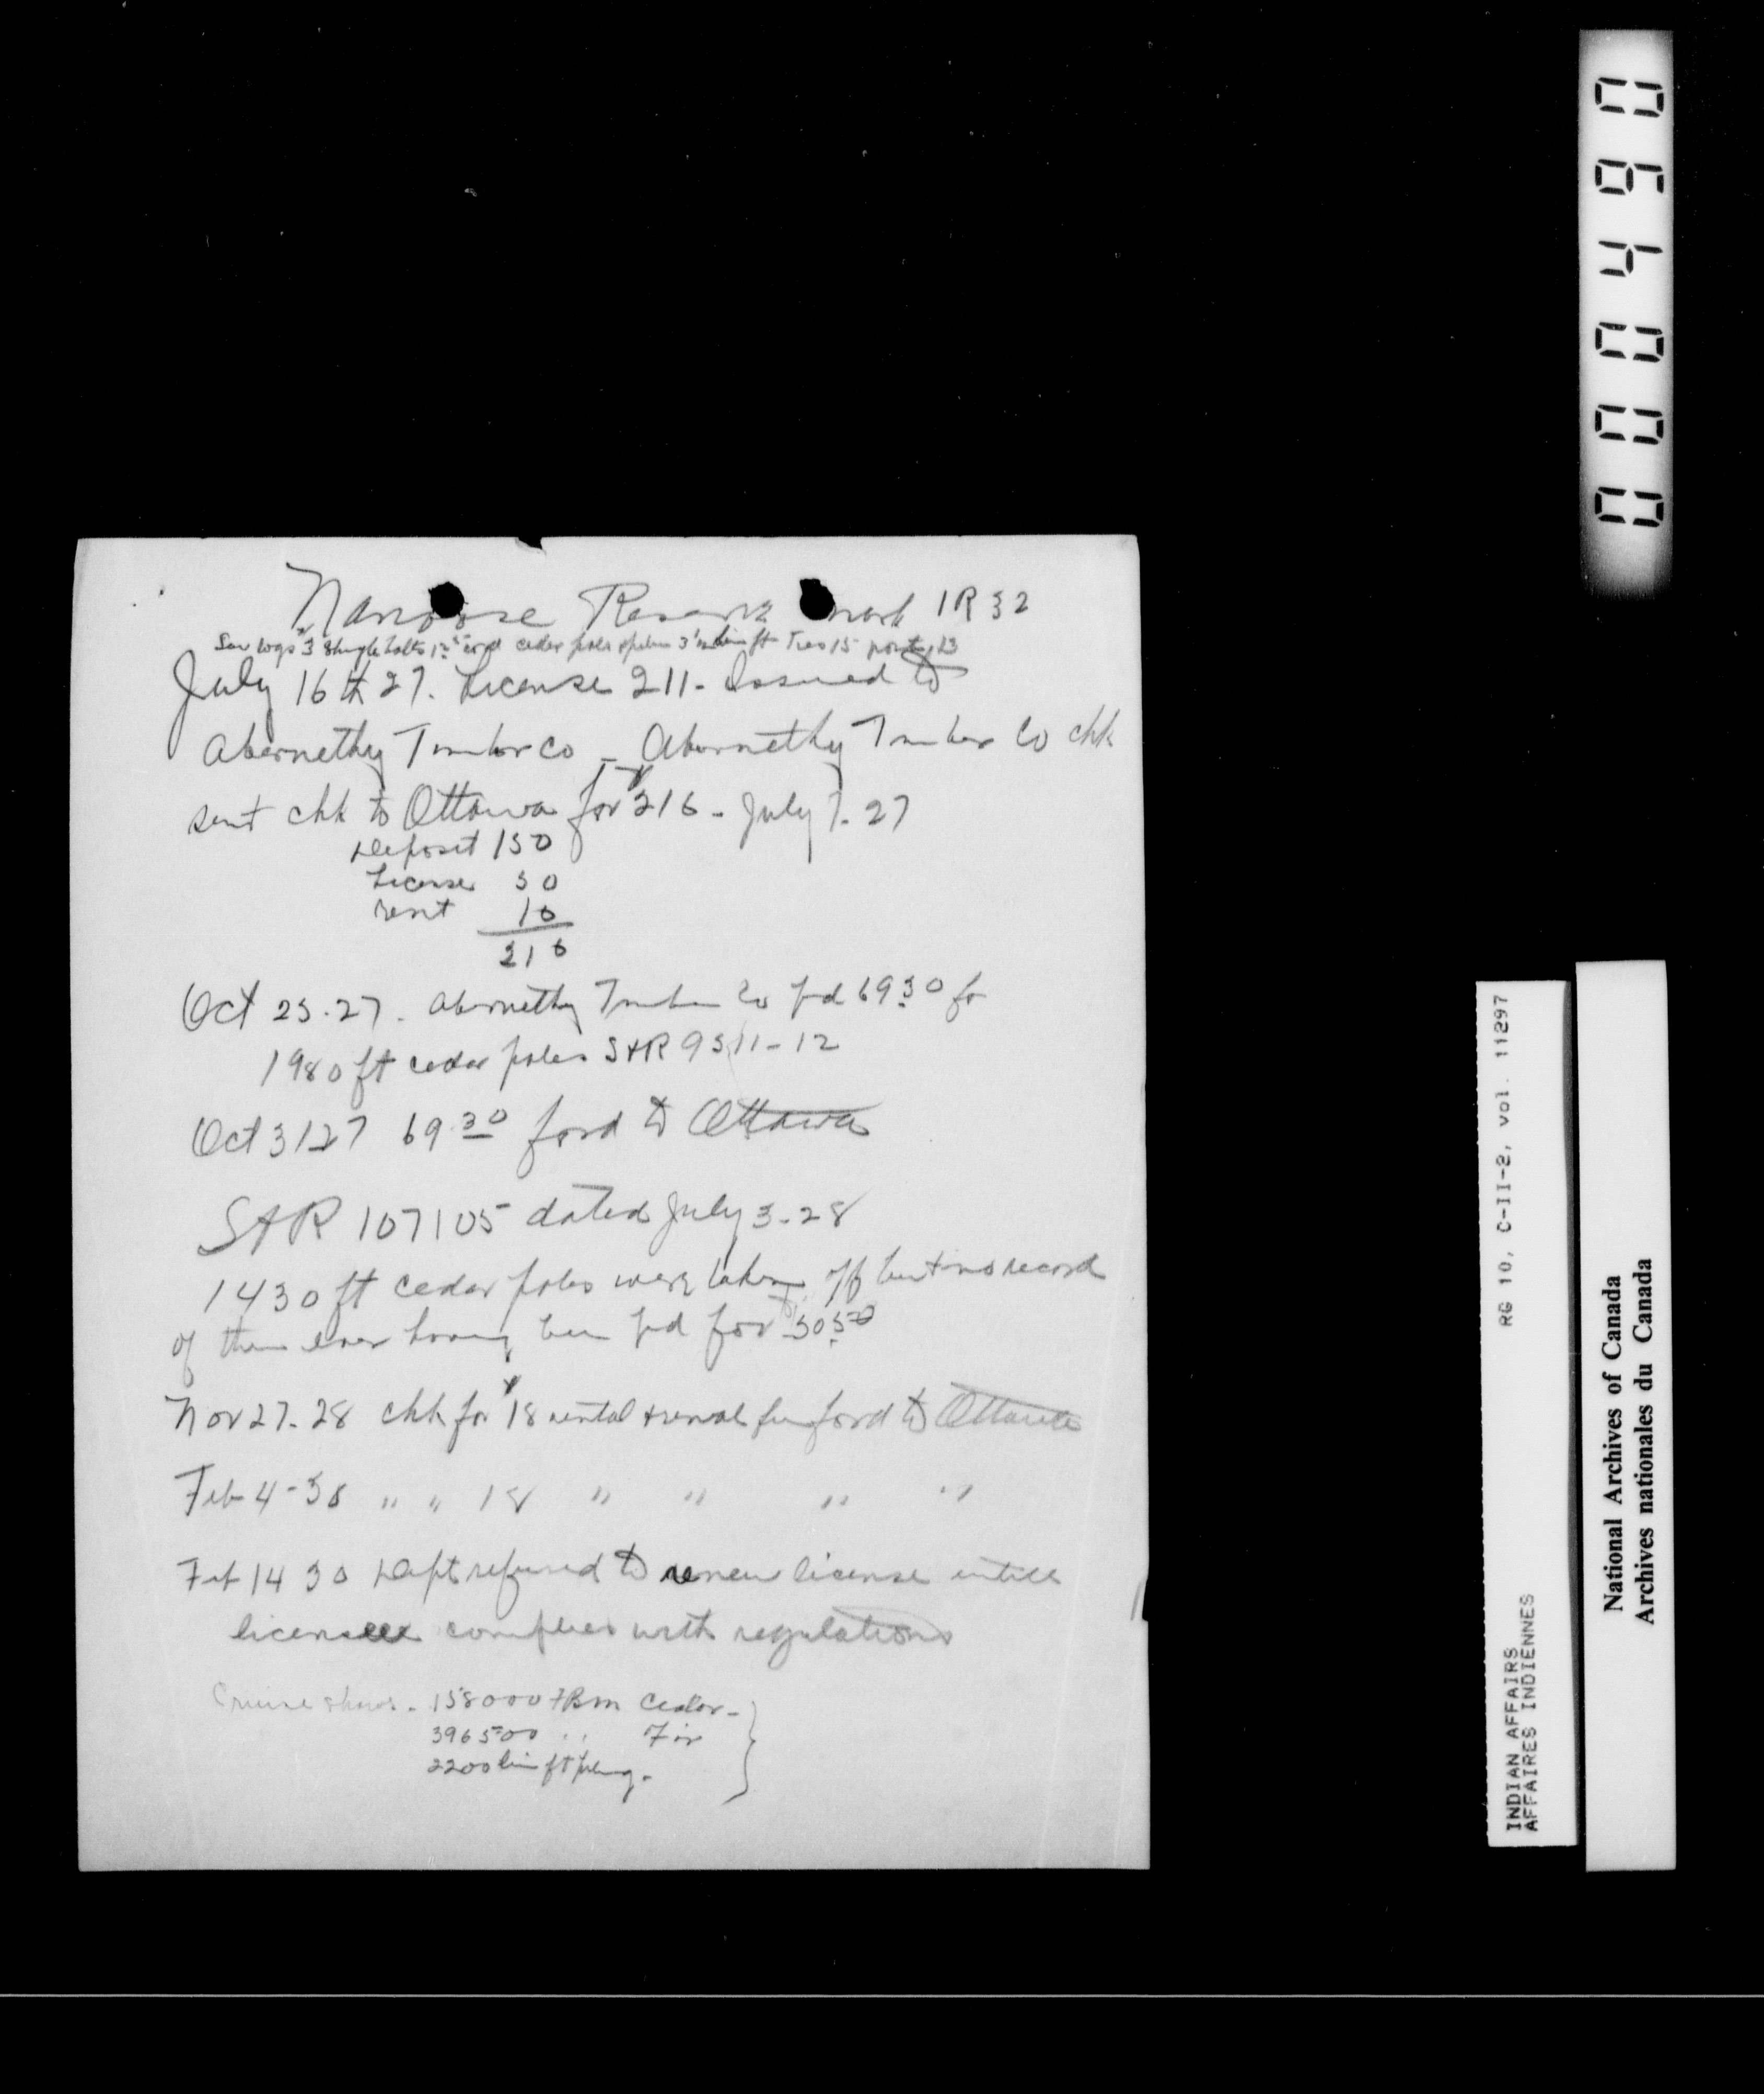 Nanoose Reserve mark IR 32
Saw logs $3 Shingle bolts 1.25 cord cedar poles 3½ lin ft Ties 15
July 16th 27. License 211 - Issued to
Abernethy Timber Co - Abernethy Timber Co chk
sent chk to Ottawa for $216 - July 7-27
Deposit 150
License 50
rent 16
216
Oct 25-27. Abernethy Timber Co pd 69.30 for
1980 ft cedar poles S&R 9511-12
Oct 31 27 69.30 ford to Ottawa
S&R 107105 dated July 3-28
1430 ft cedar poles were taken off but no record
of them ever having been pd for $50.50
Nov 27-28 chk for $18 rental & renewal fee ford to Ottawa
Feb 4-30 " " 18 " " " "
Feb 14 30 Dept refused to renew license untill
licensee complies with regulations
Cruise shows - 158000 FBM Cedar -
396500 " Fir
2200 lin ft piling -
000490
RG 10, C-II-2, vol. 11297
INDIAN AFFAIRS
AFFAIRES INDIENNES
National Archives of Canada
Archives nationales du Canada